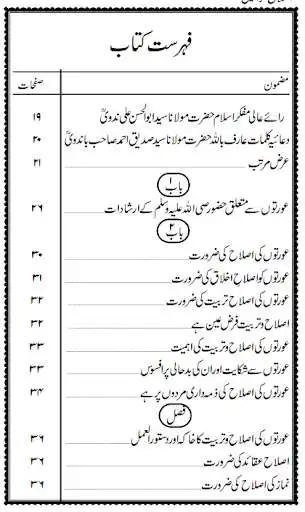 فہرست کتاب
مضمون صفحات
رائے عالی مفکر اسلام حضرت مولانا سید ابوالحسن علی ندویؒ ۱۹
دعائیہ کلمات عارف باللہ حضرت مولانا سید صدیق احمد صاحب باندویؒ ۲۰
عرض مرتب ۲۱
باب ۱
عورتوں سے متعلق حضور صلی اللہ علیہ وسلم کے ارشادات ۲۶
باب ۲
عورتوں کی اصلاح کی ضرورت ۳۰
عورتوں کو اصلاح اخلاق کی ضرورت ۳۱
عورتوں کی اصلاح تربیت کی ضرورت ۳۲
اصلاح و تربیت فرض عین ہے ۳۲
عورتوں کی اصلاح و تربیت کی اہمیت ۳۳
عورتوں سے شکایت اور ان کی بدحالی پر افسوس ۳۳
عورتوں کی اصلاح کی ذمہ داری مردوں پر ہے ۳۴
فصل
عورتوں کی اصلاح و تربیت کا خاکہ اور دستور العمل ۳۶
اصلاح عقائد کی ضرورت ۳۶
نماز کی اصلاح کی ضرورت ۳۶